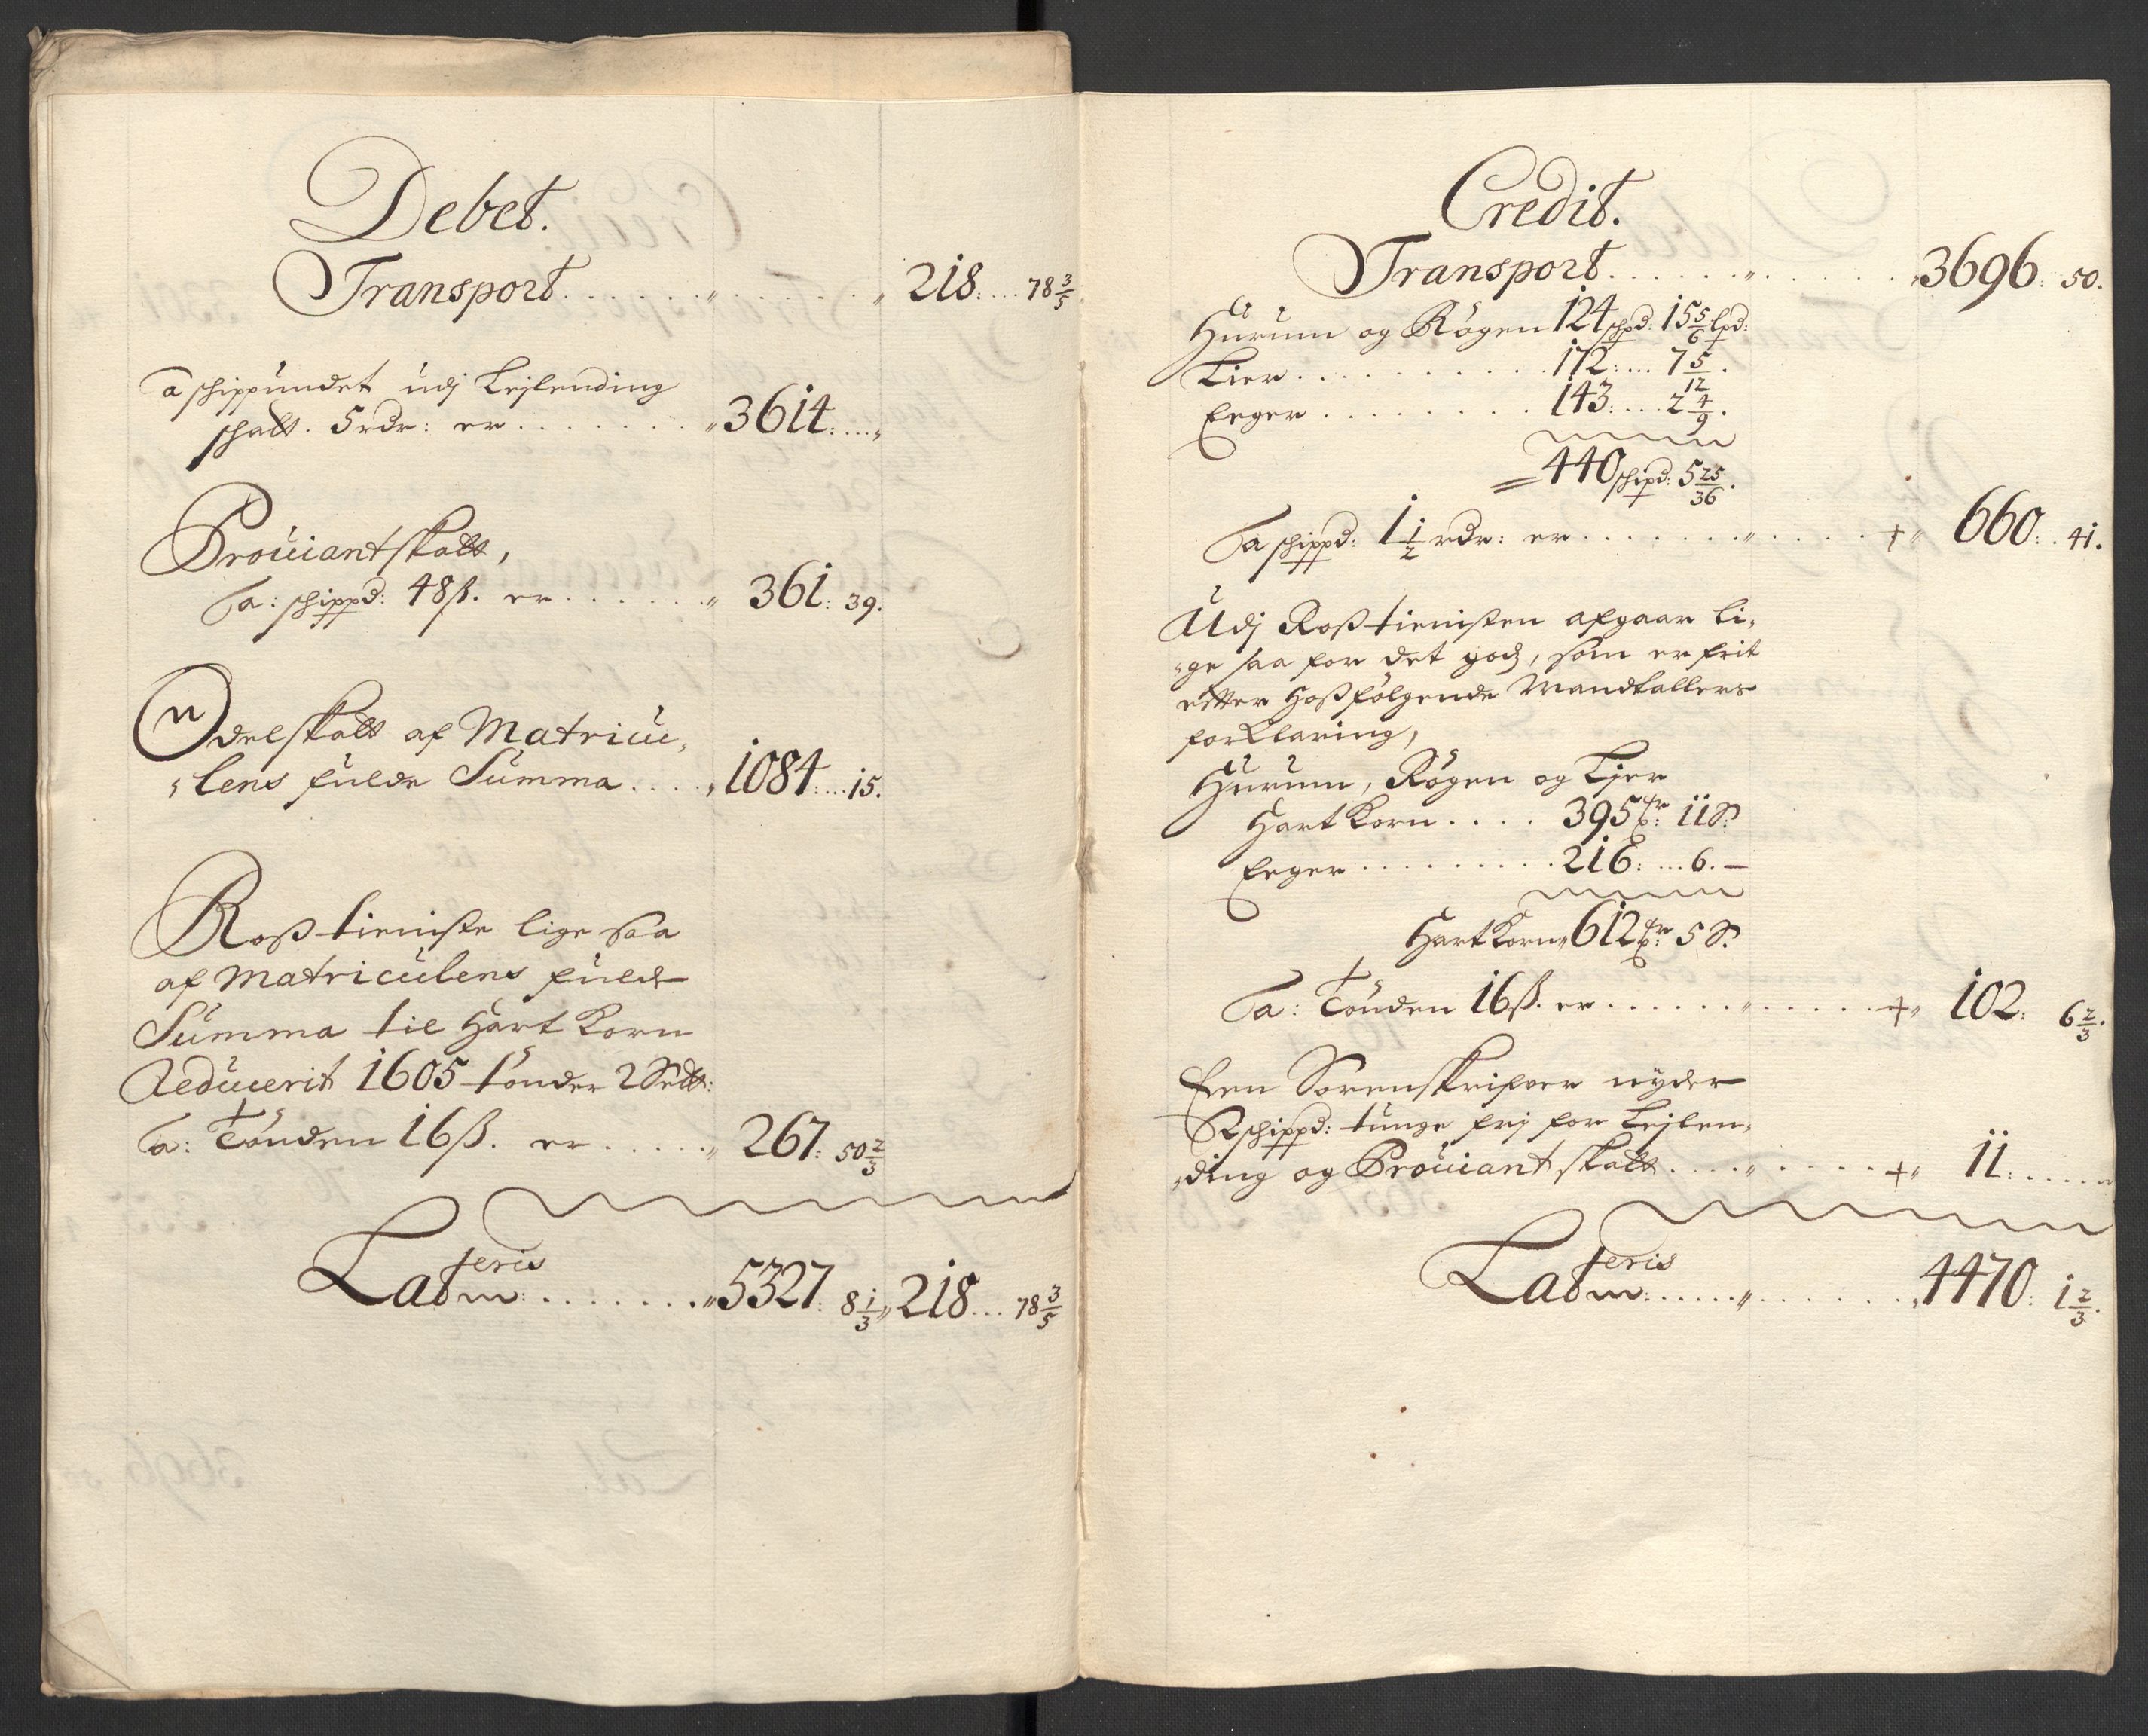 Debet.
Transport . . . . . . „ . . . . . . „ 218: . . . 78 3/5
a schippundet udj Lejlending
schatt. 5 rdr: er . . . . . . . „ 3614: . . . „
Prouiantskatt,
a: schippd: 48 ß. er . . . . . . „ 361: 39.
Odelskatt af Matricu-
„lens fulde Summa . . . . „ 1084: . . . 15.
Roßtieniste lige saa
af Matriculens fulde
Summa til Hart Korn
Reducerit 1605 tönder 2 Sett:
a: Tönden 16 ß. er . . . . . „ 267: 50 2/3
Lateris . . . . . . . „ 5327: 8 1/3 „ 218 . . . 78 3/5
Credit.
Transport . . . . . . „ . . . . . . „ 3696: 50.
Hurum og Rögen 124 schpd: 15 5/6 lpd:
Lier . . . . . . . . . . 172: . . . 7 5/12.
Eeger . . . . . . . . 143: . . . 2 4/9.
= 440 schipd: 5 25/36.
a schippd: 1 1/2 rdr: er . . . . . . . „ . . . . + „ 660: . 41.
Udj Roßtienisten afgaar li-
„ge saa for det gods, som er frit
efter hoßfölgende Mandtallers
forklaring,
Hurum, Rögen og Lier
Hart Korn . . . . 395 tr: 11 S:
Eeger . . . . . . . . . 216: . . . 6. –
Hart Korn „ 612 tr: 5 S:
a: Tönden 16 ß. er . . . . . . „ . . . . . + „ 102: 6 2/3.
Een Sorenskrifver nyder
2 schippd: tunge frj for Lejlen-
„ding og Prouiant skatt . . . . „ . . . . + „ 11: . . . . . „
Lateris . . . . . „ . . . . . . „ 4470: 1 2/3.